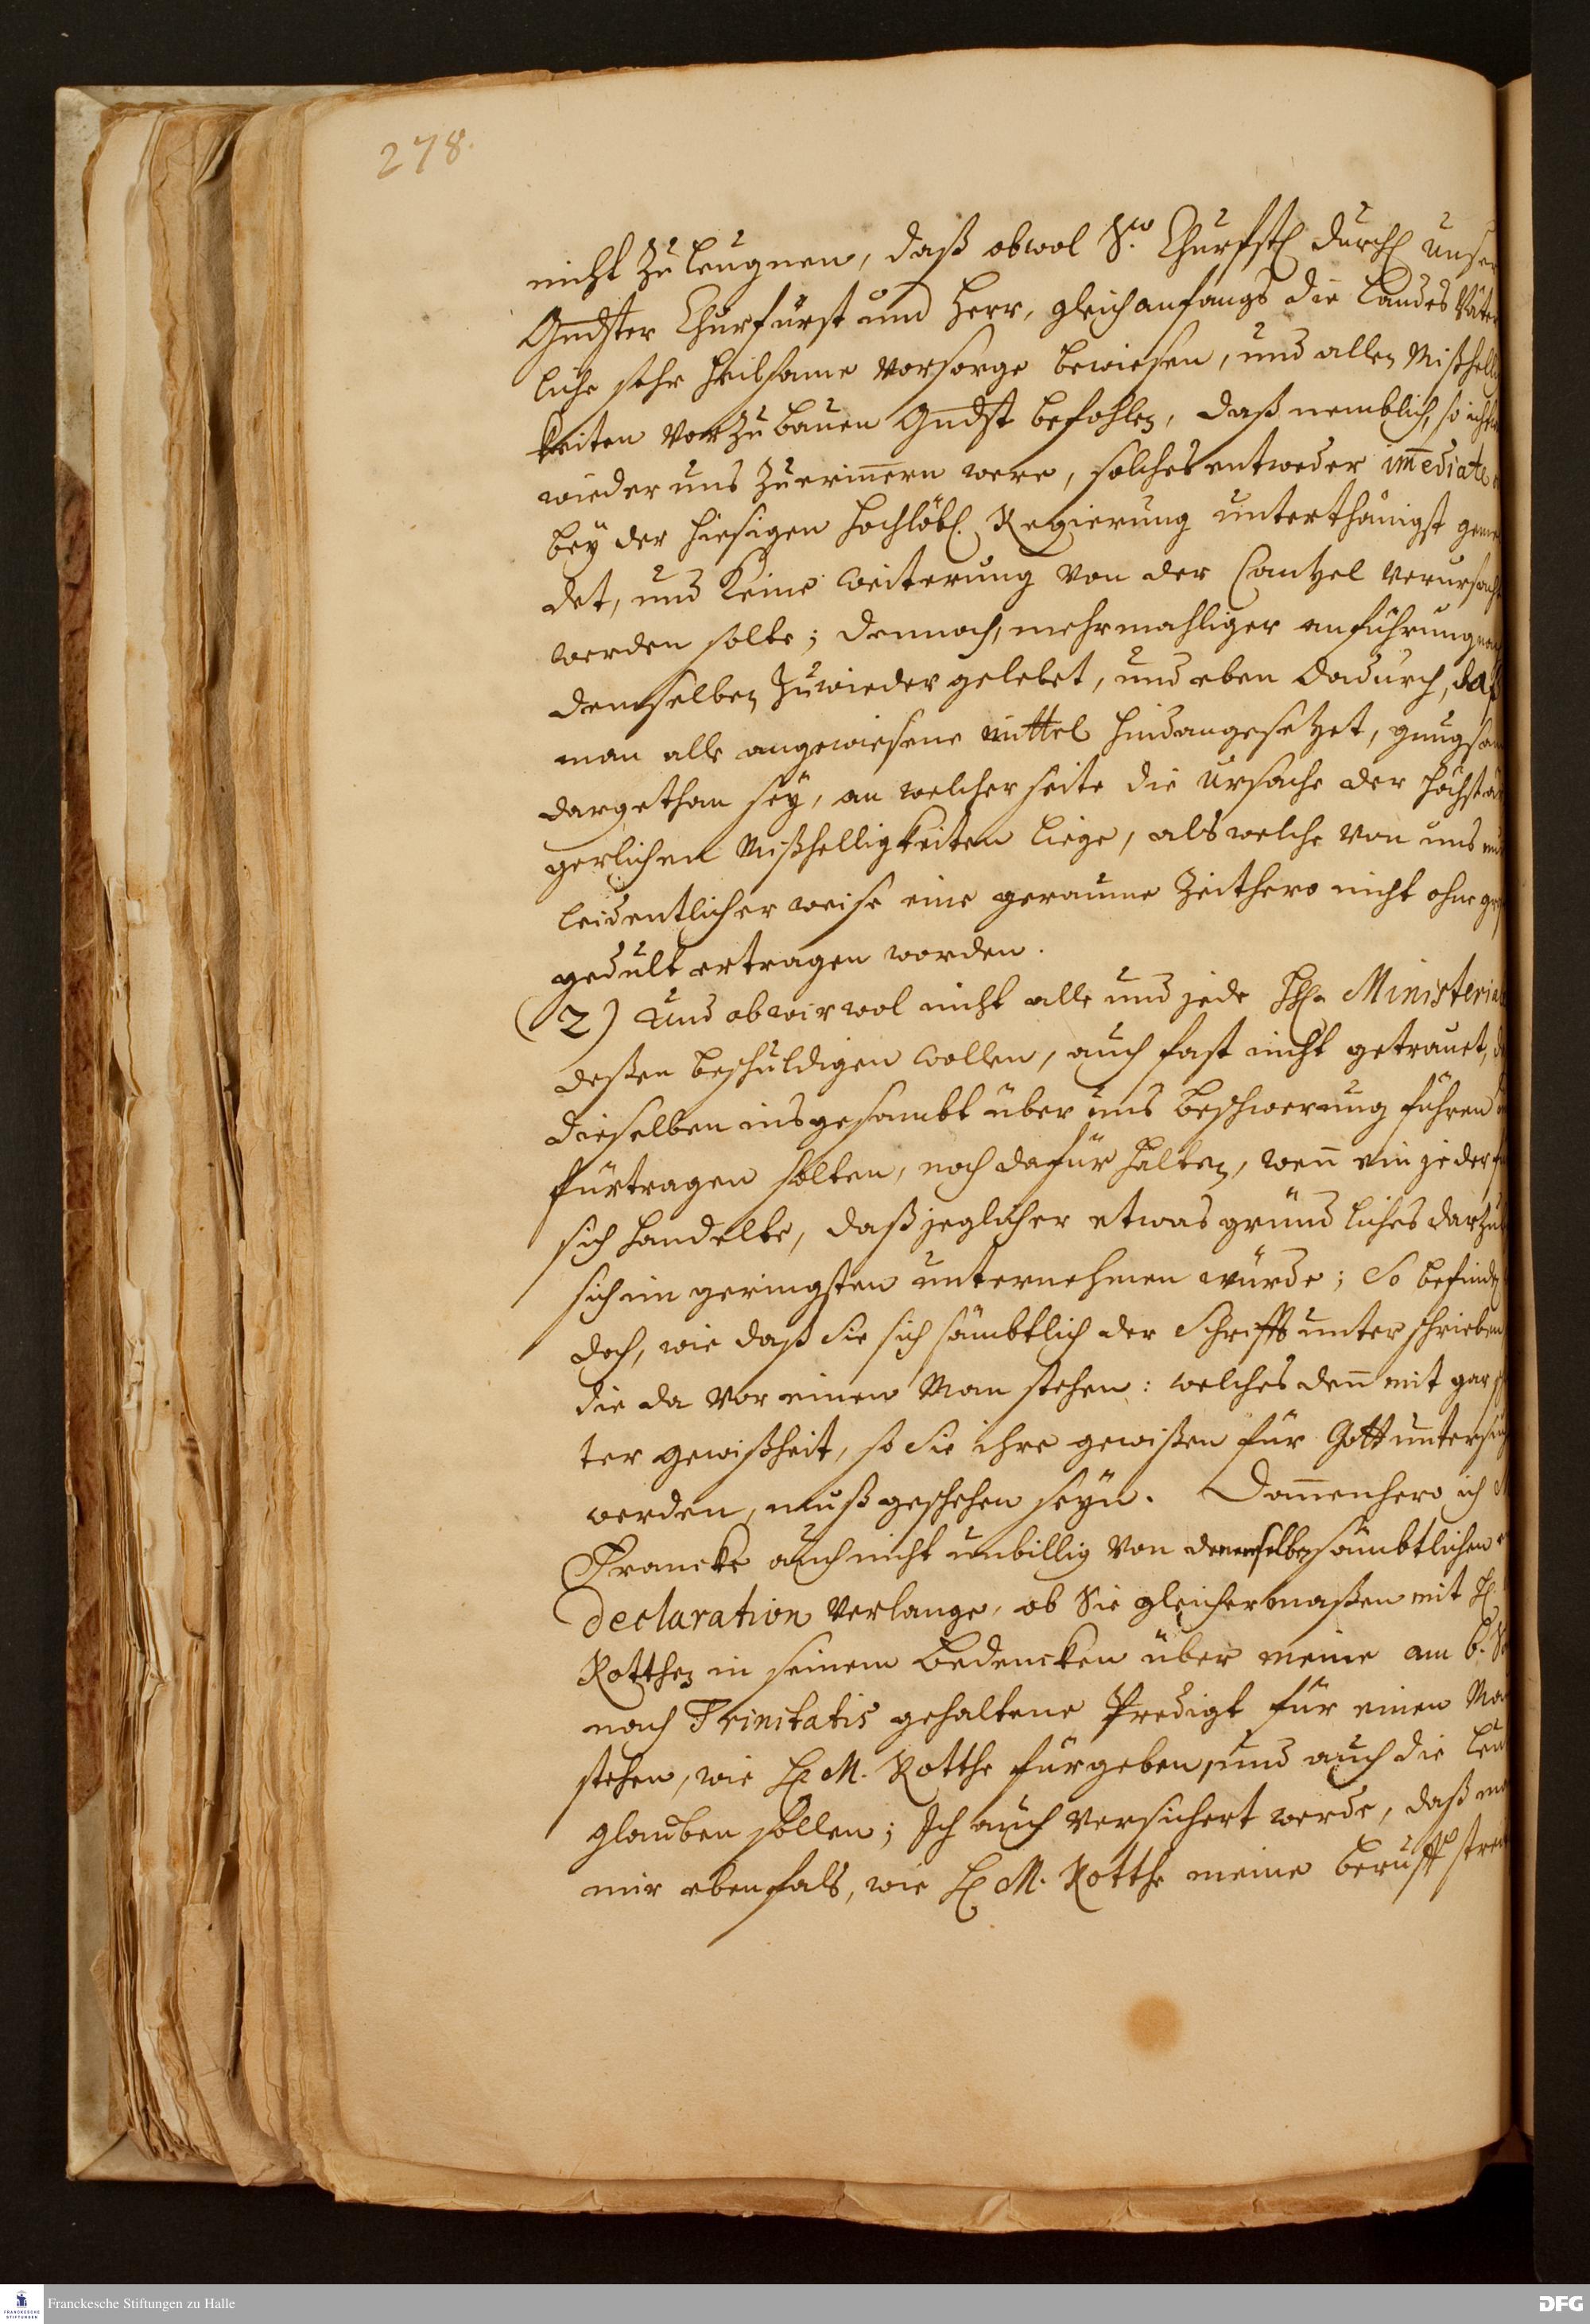 278.
nicht zu leugnen, daß obwol Sr. Churfstl Durchl unser
Gndster Churfürst und Herr, gleich anfangs die Landes Väter
liche sehr heilsame Vorsorge bewiesen, und allen Mißhellig
keiten vorzubauen Gndst befohlen, daß nemblich, so ichtes
wieder uns zu erinnern were, solches entweder im̅ediate
bey der hiesigen hochlöbl. Regierung unterthänigst gemel
det, und keine weiterung von der Cantzel verursacht
werden solte; dennoch, mehrmahliger anführung nach
demselben zuwieder gelebet, und eben dadurch, daß
man alle angewiesene mittel hindangesetzet, gnugsam
dargethan sey, an welcher seite die Ursache der höchst är
gerlichen Mißhelligkeiten liege, als welche von uns
leidentlicher weise eine geraume Zeithero nicht ohne
gedult ertragen worden.
(2) Und ob wir wol nicht alle und jede HHn Ministerial
deßen beschuldigen wollen, auch fast nicht getrauet,
dieselben insgesambt über uns beschwerung führen
fürtragen solten, noch dafür halten, wen̅ ein jeder für
sich handelte, daß jeglicher etwas gründliches darzu
sich im geringsten unternehmen würde; So befindet
doch, wie daß Sie sich sämbtlich der Schrifft unterschrieben
die da vor einen Man stehen: welches den̅ mit gar
ter gewißheit, so Sie ihre gewißen für Gott untersuch
werden, muß geschehen seyn. Dan̅enhero ich M
Francke auch nicht unbillig von denenselben sämbtlichen
declaration verlange, ob Sie gleichermaßen mit H.
Rotthen in seinem bedencken über meine am 6.
nach Trinitatis gehaltene Predigt für einen Man
stehen, wie H. M. Rotthe fürgeben, und auch die Leut
glauben sollen; Ich auch versichert werde, daß
mir ebenfals, wie H. M. Rotthe meine beruff streit
Franckesche Stiftungen zu Halle
FRANCKESCHE
STIFTUNGEN
DFG